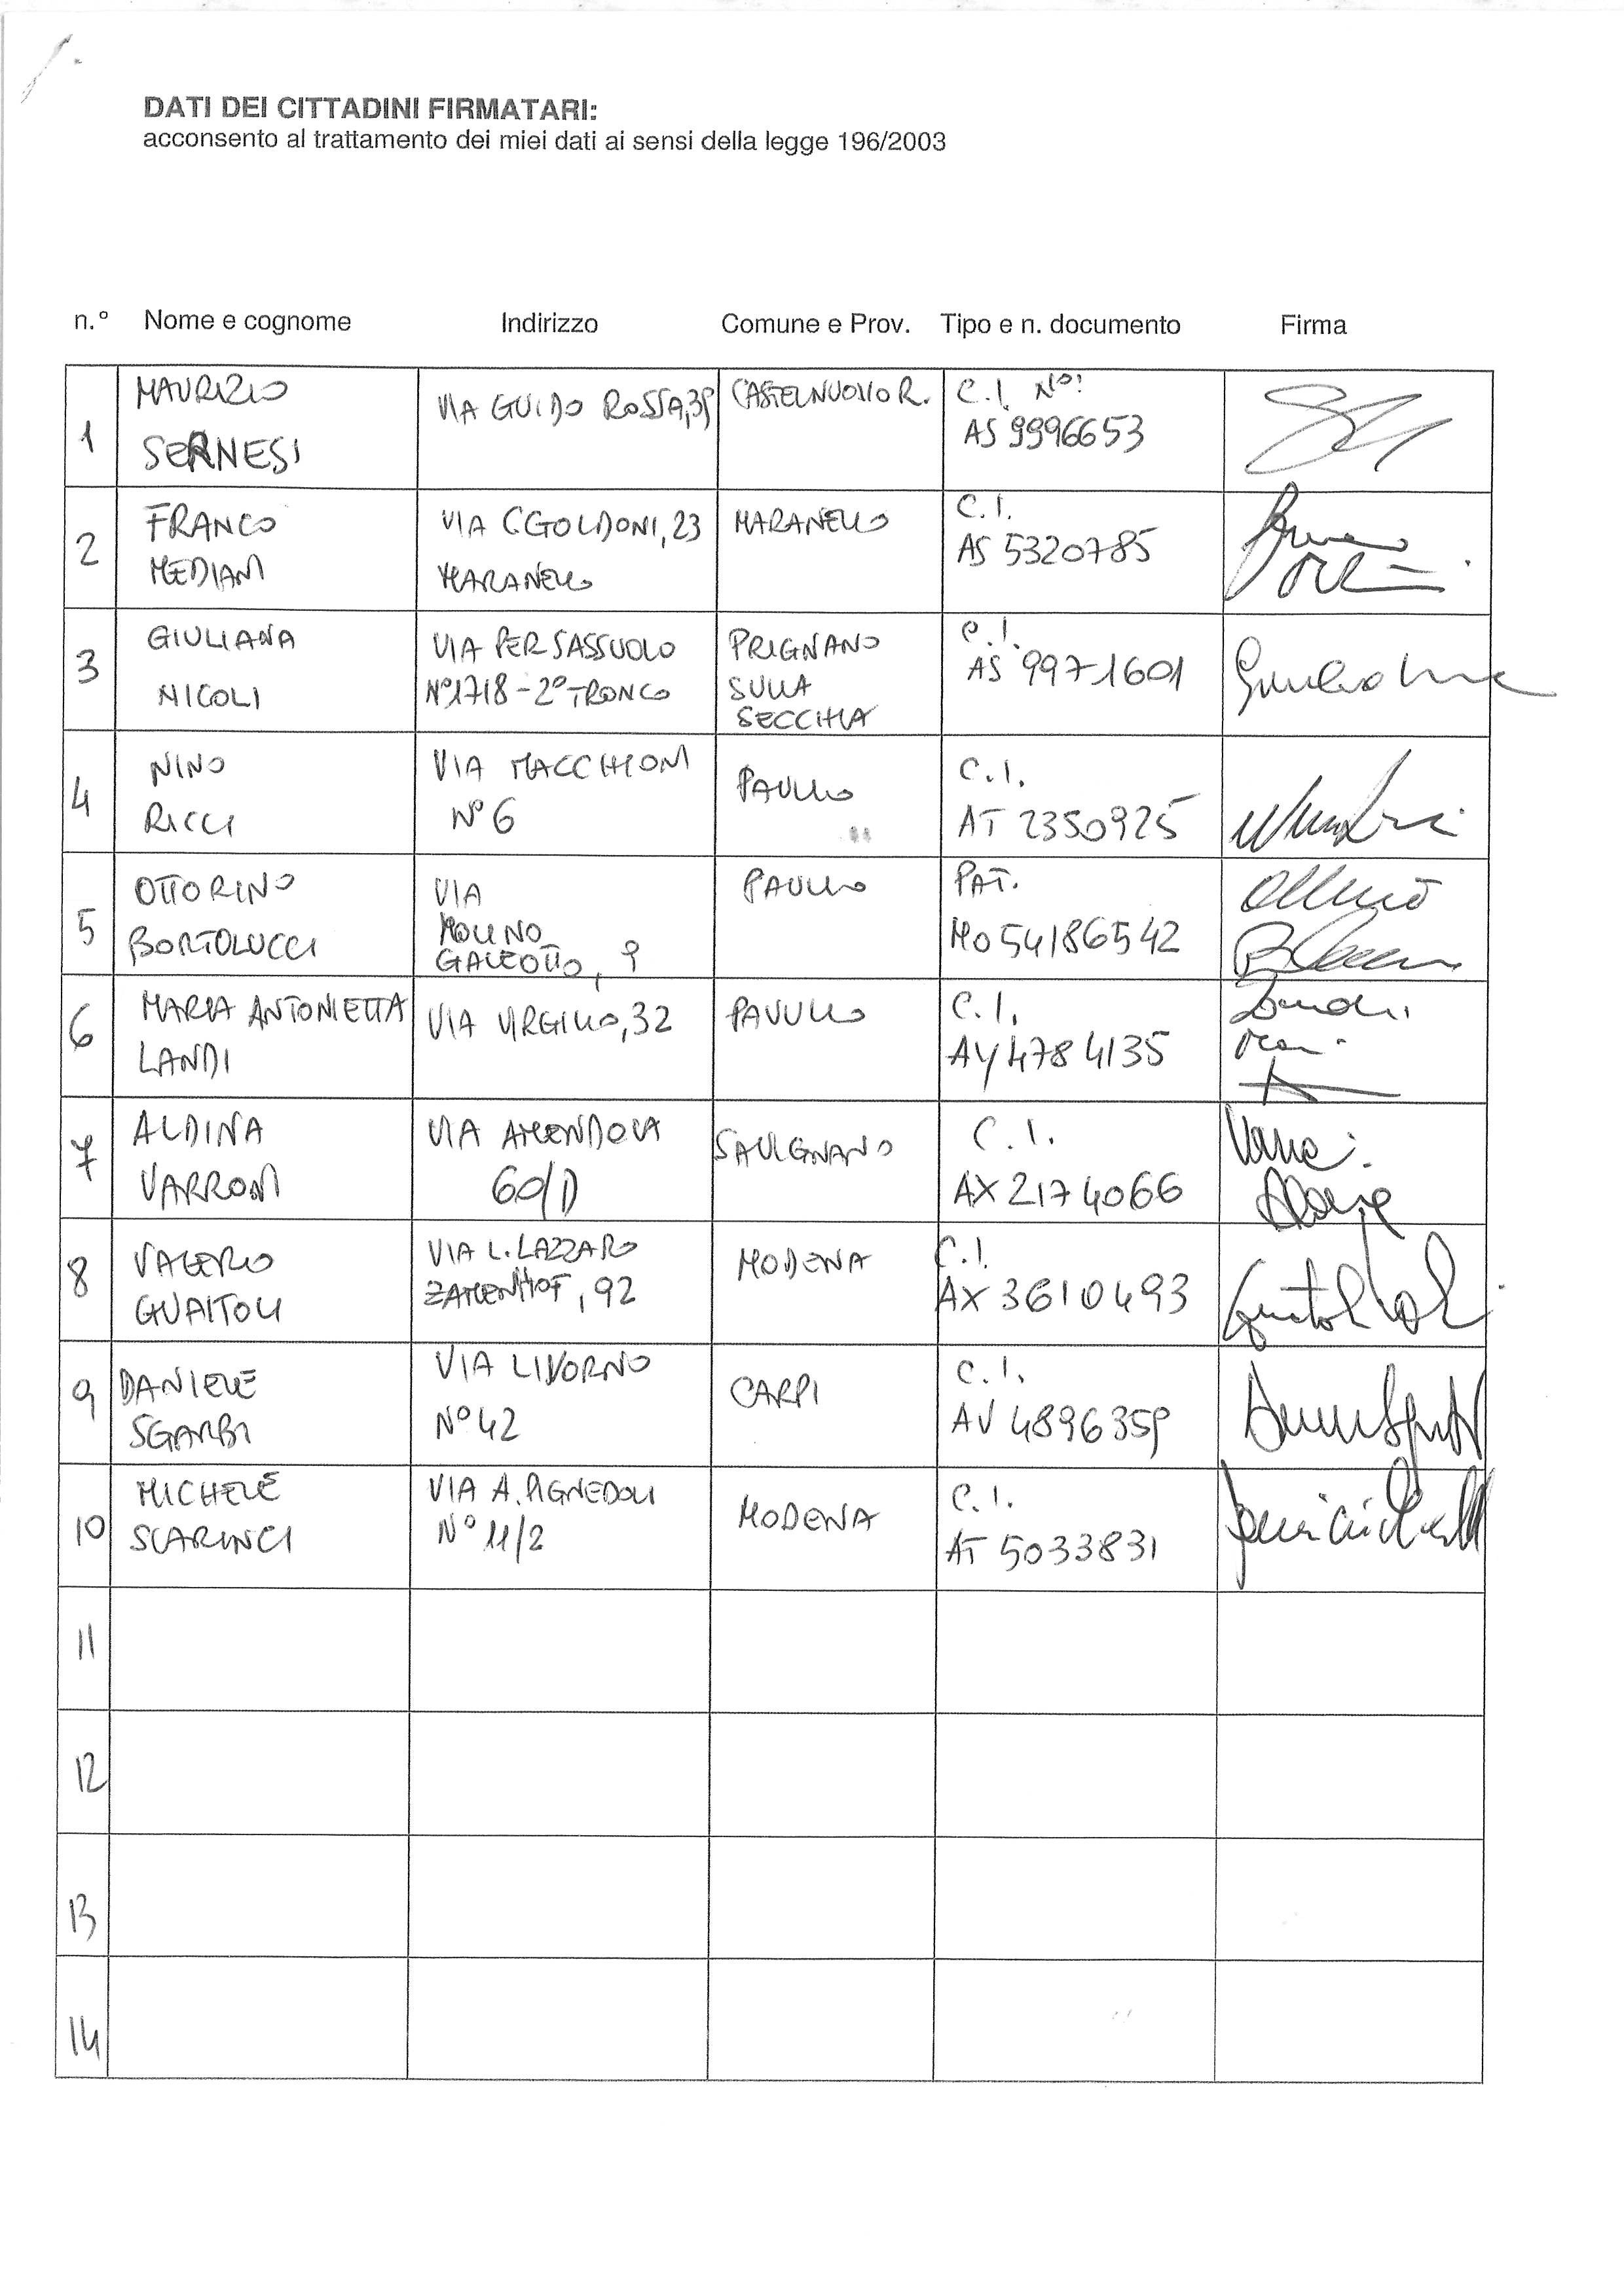 DATI DEI CITTADINI FIRMATARI:
acconsento al trattamento dei miei dati ai sensi della legge 196/2003
n.° Nome e cognome Indirizzo Comune e Prov. Tipo e n. documento Firma
1 MAURIZIO SERNESI VIA GUIDO ROSSA,39 CASTELNUOVO R. C.I. N°: AS 9996653
2 FRANCO MEDIANI VIA C.GOLDONI,23 MARANELLO MARANELLO C.I. AS 5320785
3 GIULIANA NICOLI VIA PER SASSUOLO N°1718-2° TRONCO PRIGNANO SULLA SECCHIA C.I. AS 9971601
4 NINO RICCI VIA MACCHIONI N°6 PAVULLO C.I. AT 2350925
5 OTTORINO BORTOLUCCI VIA MOLINO GALEOTTO, 9 PAVULLO PAT. MO54186542
6 MARIA ANTONIETTA LANDI VIA VIRGILIO,32 PAVULLO C.I. AY4784135
7 ALDINA VARRONI VIA AMENDOLA 60/D SAVIGNANO C.I. AX 2174066
8 VALERIO GUAITOLI VIA L.LAZZARO ZAMENHOF,92 MODENA C.I. AX 3610493
9 DANIELE SGARBI VIA LIVORNO N°42 CARPI C.I. AV 4896359
10 MICHELE SCARINCI VIA A.PIGNEDOLI N°11/2 MODENA C.I. AT 5033831
11
12
13
14